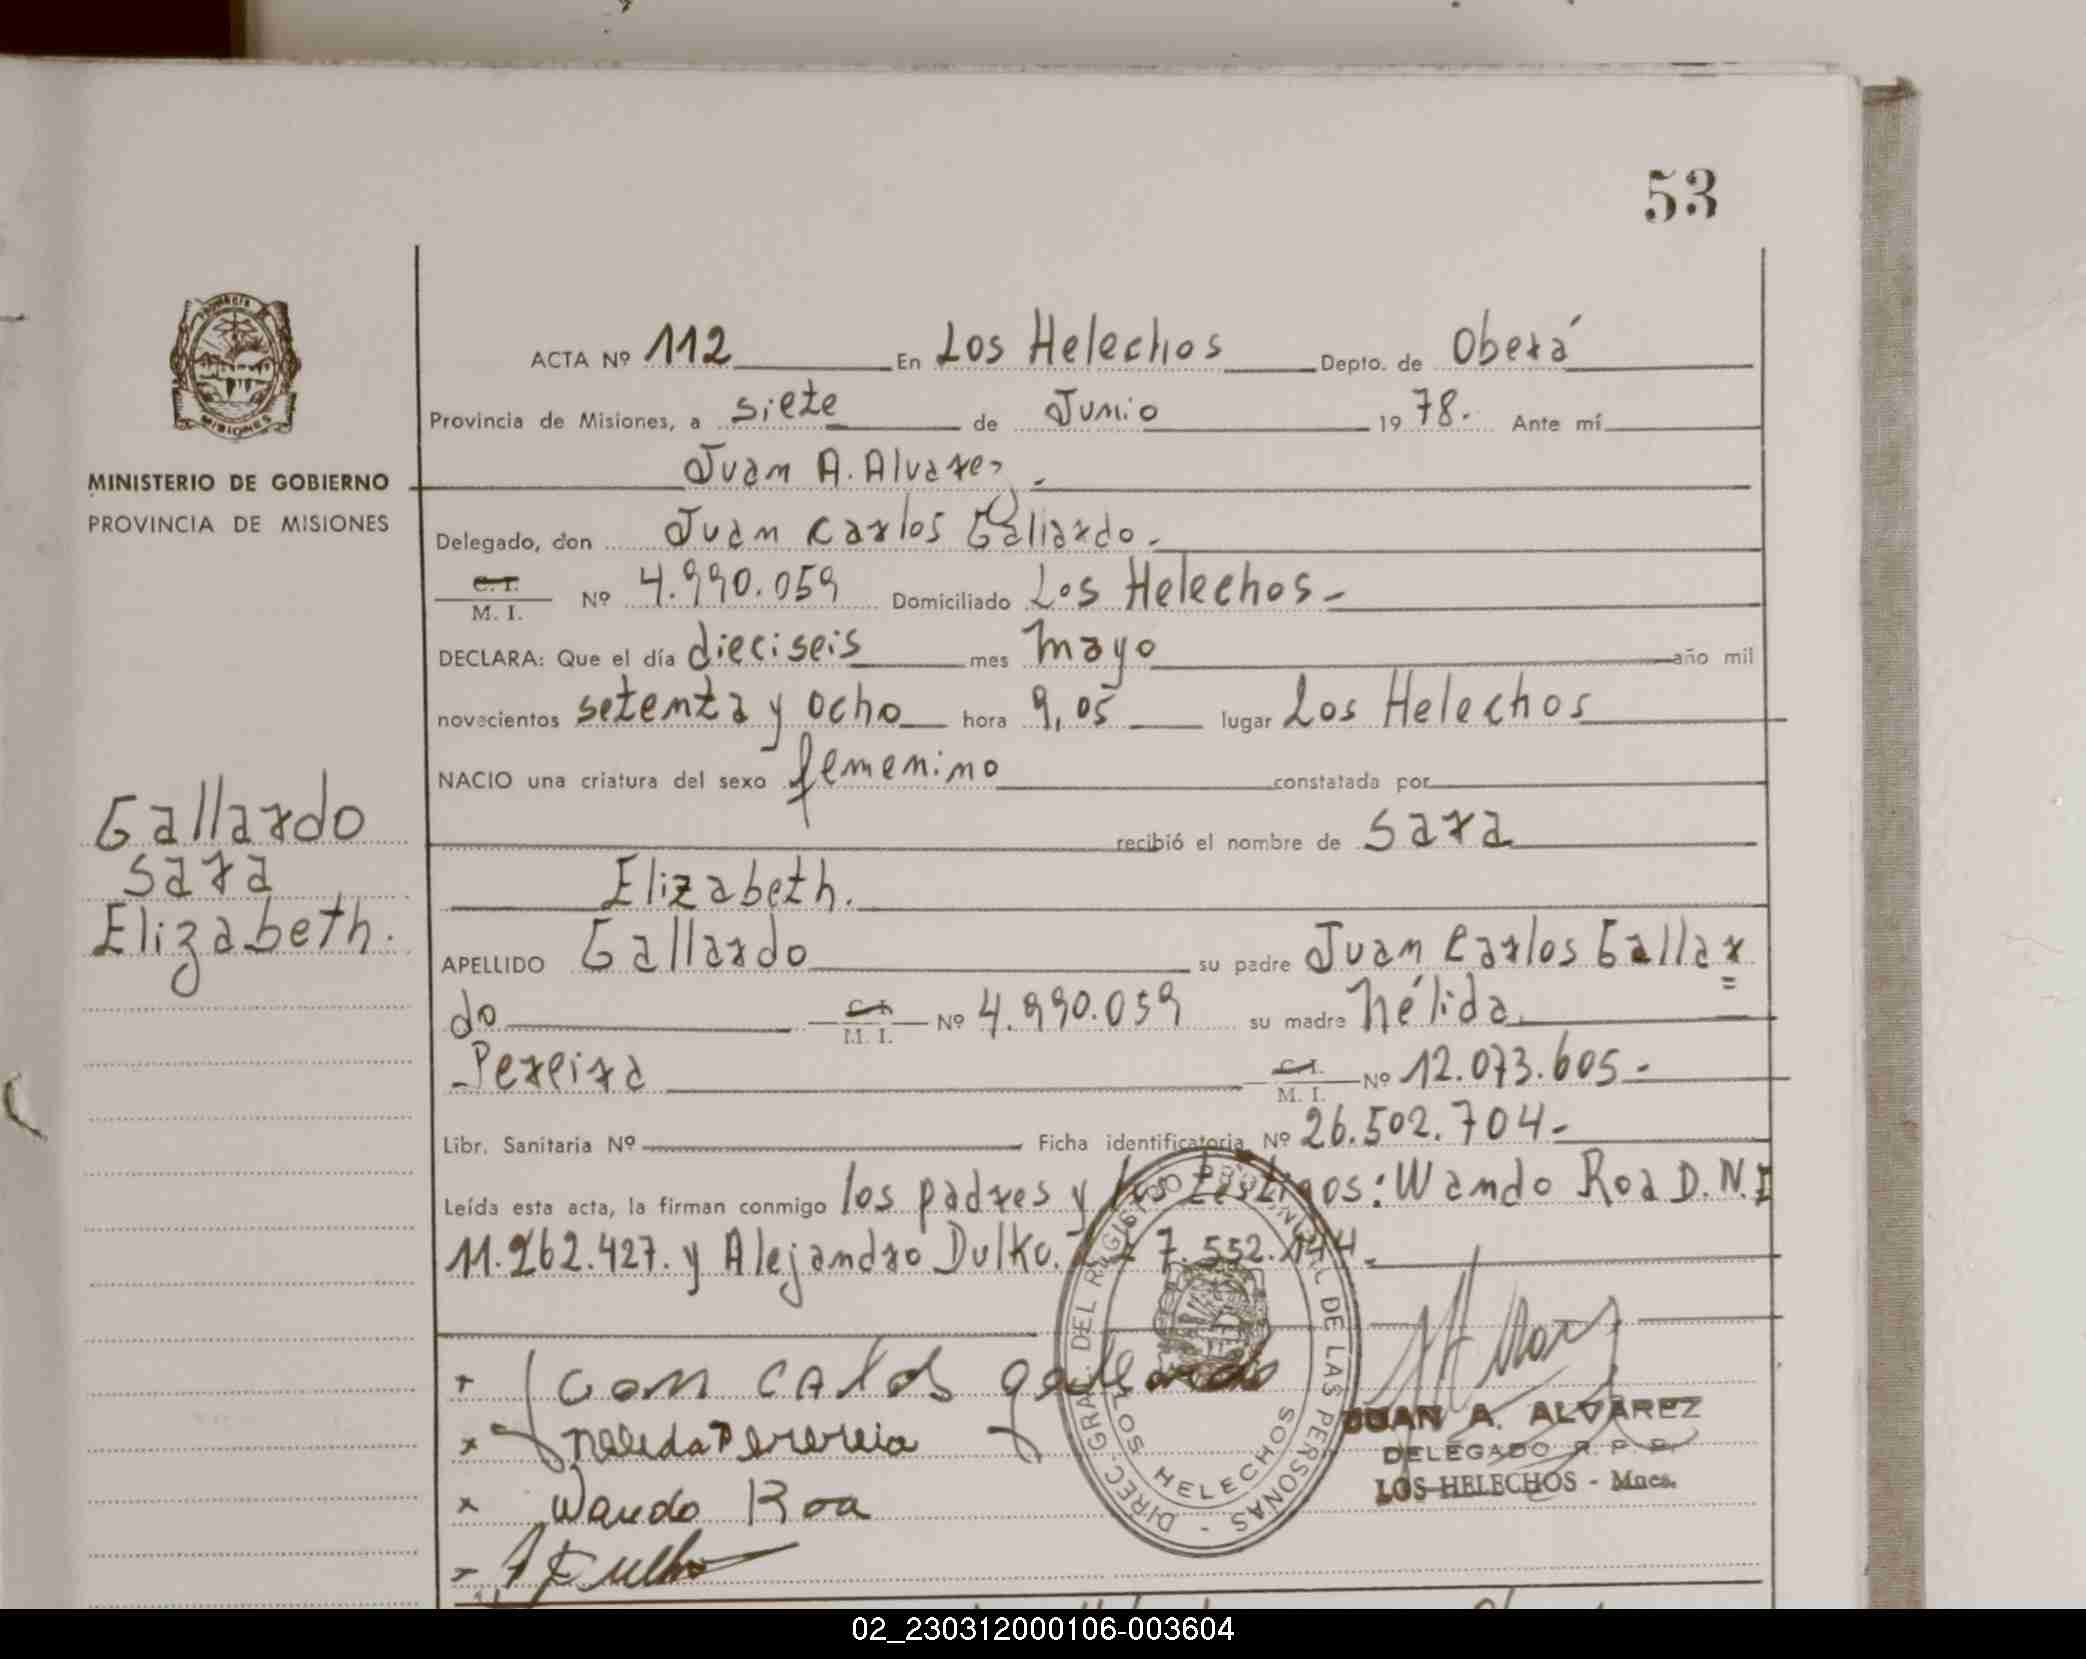 53
ACTA Nº 112 En Los Helechos Depto. de Oberá
Provincia de Misiones, a siete de Junio 1978. Ante mí
Juan A. Alvarez.
MINISTERIO DE GOBIERNO
PROVINCIA DE MISIONES
Delegado, don Juan Carlos Gallardo.
C. I.
M. I. Nº 4.990.059 Domiciliado Los Helechos
DECLARA: Que el día dieciseis mes mayo año mil
novecientos setenta y ocho hora 9,05 lugar Los Helechos
NACIO una criatura del sexo femenino constatada por
recibió el nombre de Sara
Elizabeth.
Gallardo
Sara
Elizabeth.
APELLIDO Gallardo su padre Juan Carlos Gallar=
do C. I. M. I. Nº 4.990.059 su madre Nélida
Pereira C. I. M. I. Nº 12.073.605-
Libr. Sanitaria Nº Ficha identificatoria Nº 26.502.704-
Leída esta acta, la firman conmigo los padres y los testigos: Wando Roa D.N.I
11.262.427. y Alejandro Dulko. 7.552.144.
DIREC. GRAL. DEL REGISTRO PROVINCIAL DE LAS PERSONAS -
LOS HELECHOS
Wando Roa
JUAN A. ALVAREZ
DELEGADO R. P. P.
LOS HELECHOS - Mnes.
02_230312000106-003604